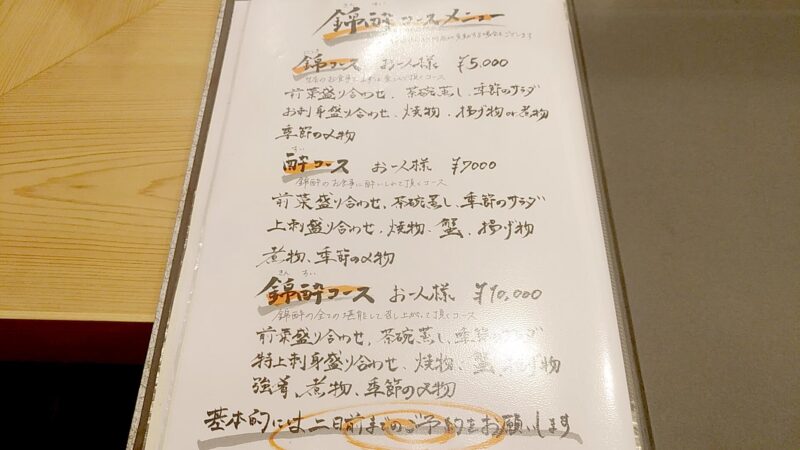 錦酔コースメニュー
変動する場合もございます
錦コース お一人様 ¥5,000
前菜盛り合わせ、茶碗蒸し、季節のサラダ
お刺身盛り合わせ、焼物、揚げ物or煮物
季節の〆物
すい
酔コース お一人様 ¥7000
錦酔のお食事に酔いしれて頂くコース
前菜盛り合わせ、茶碗蒸し、季節のサラダ
上刺盛り合わせ、焼物、蟹、揚げ物
煮物、季節の〆物
きん すい
錦酔コース お一人様 ¥10,000
錦酔の全てを堪能して召し上がって頂くコース
前菜盛り合わせ、茶碗蒸し、季節のサラダ
特上刺身盛り合わせ、焼物、蟹、揚げ物
強肴、煮物、季節の〆物
基本的には二日前までのご予約をお願いします